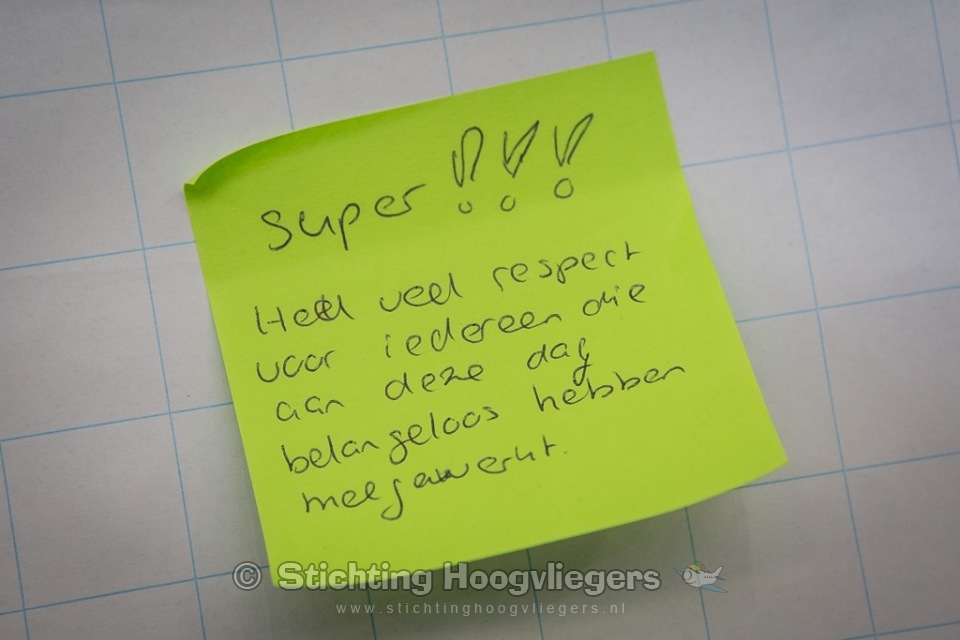 super !!!
Heel veel respect
voor iedereen die
aan deze dag
belangeloos hebben
meegewerkt.
© Stichting Hoogvliegers
www.stichtinghoogvliegers.nl